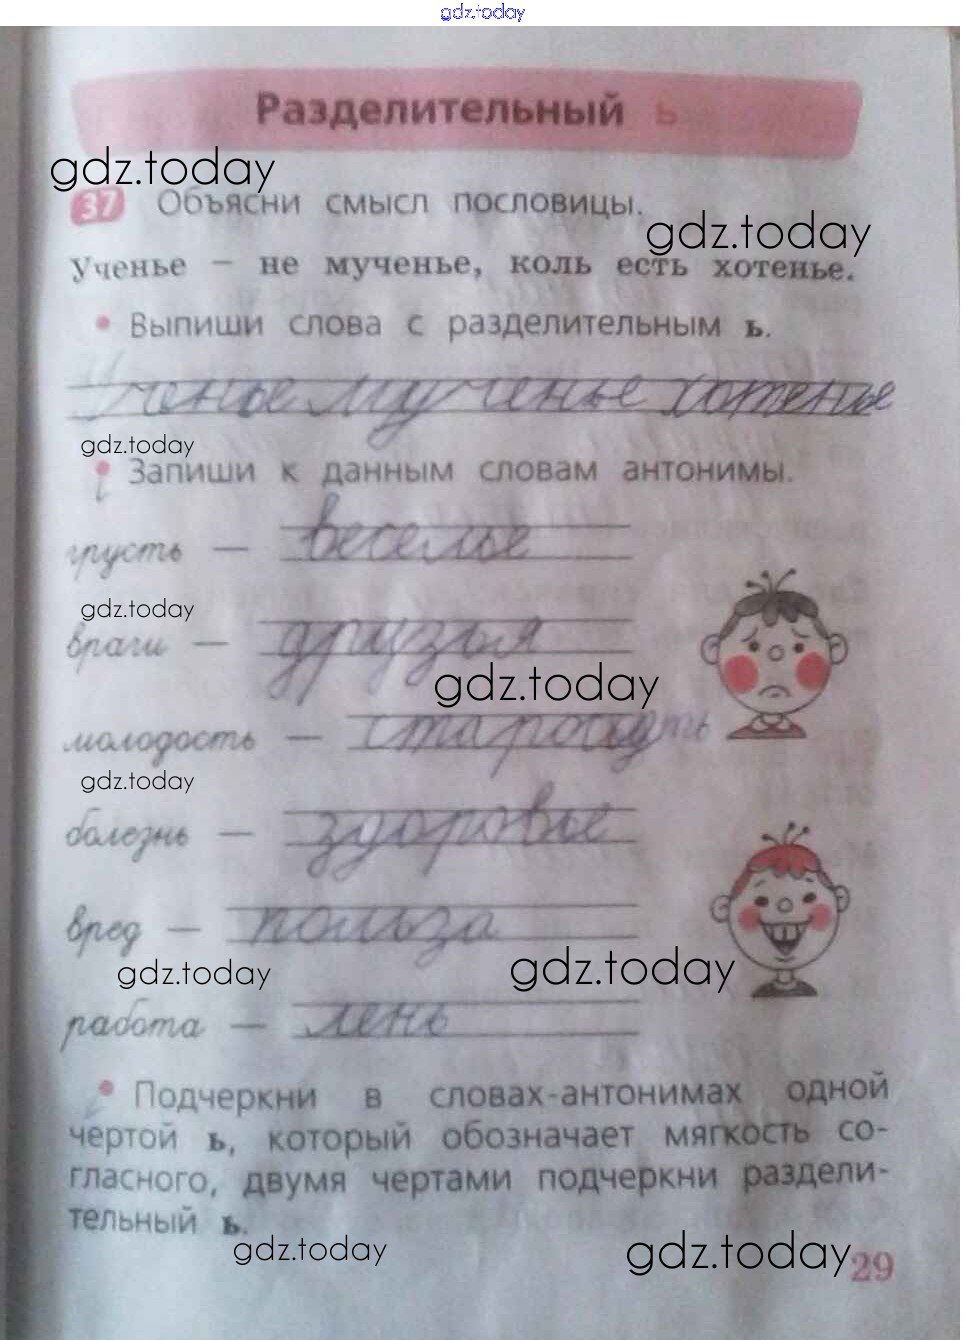 gdz.today
Разделительный ь
gdz.today
37 Объясни смысл пословицы.
gdz.today
Ученье – не мученье, коль есть хотенье.
• Выпиши слова с разделительным ь.
Ученье мученье хотенье
gdz.today
• Запиши к данным словам антонимы.
грусть — веселье
gdz.today
враги — друзья
gdz.today
молодость — старость
gdz.today
болезнь — здоровье
вред — польза
gdz.today
gdz.today
работа — лень
• Подчеркни в словах-антонимах одной
чертой ь, который обозначает мягкость со-
гласного, двумя чертами подчеркни раздели-
тельный ь.
gdz.today
gdz.today
29